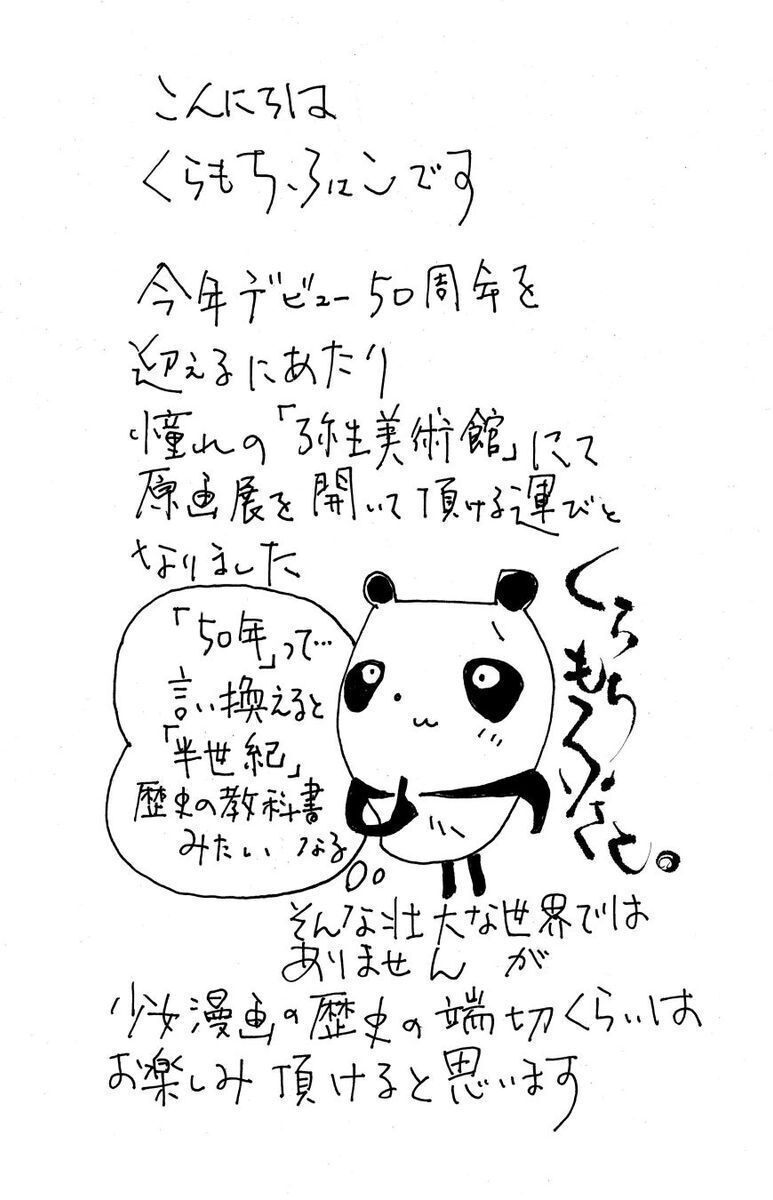 こんにちは
くらもちふさこです
今年デビュー50周年を
迎えるにあたり
憧れの「弥生美術館」にて
原画展を開いて頂ける運びと
なりました
「50年」って…
言い換えると
「半世紀」
歴史の教科書
みたい なる
くらもちふさこ。
そんな壮大な世界では
ありませんが
少女漫画の歴史の端切くらいは
お楽しみ頂けると思います